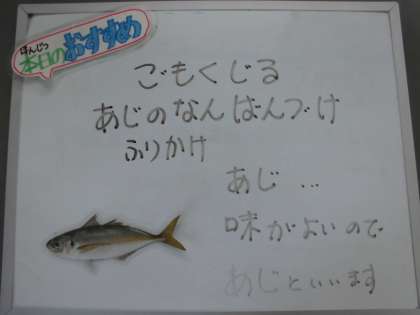 ほんじつ
本日のおすすめ
ごもくじる
あじのなんばんづけ
ふりかけ
あじ…
味がよいので
あじといいます